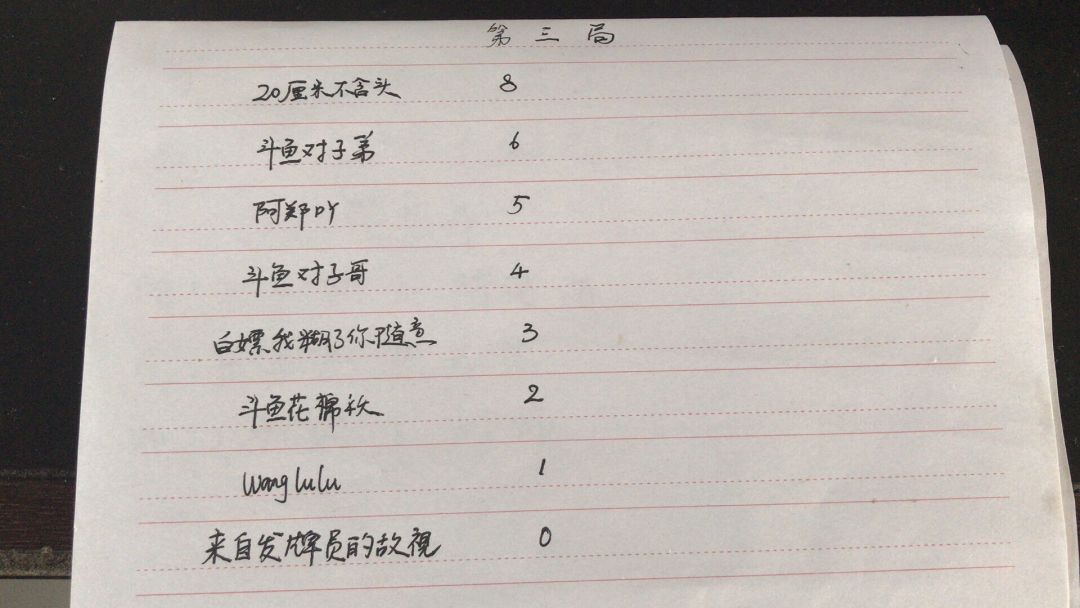 第三局
20厘米不含头 8
斗鱼对子弟 6
阿郑吖 5
斗鱼对子哥 4
白嫖我糊了你随意 3
斗鱼花棉袄 2
wanglulu 1
来自发牌员的敌视 0